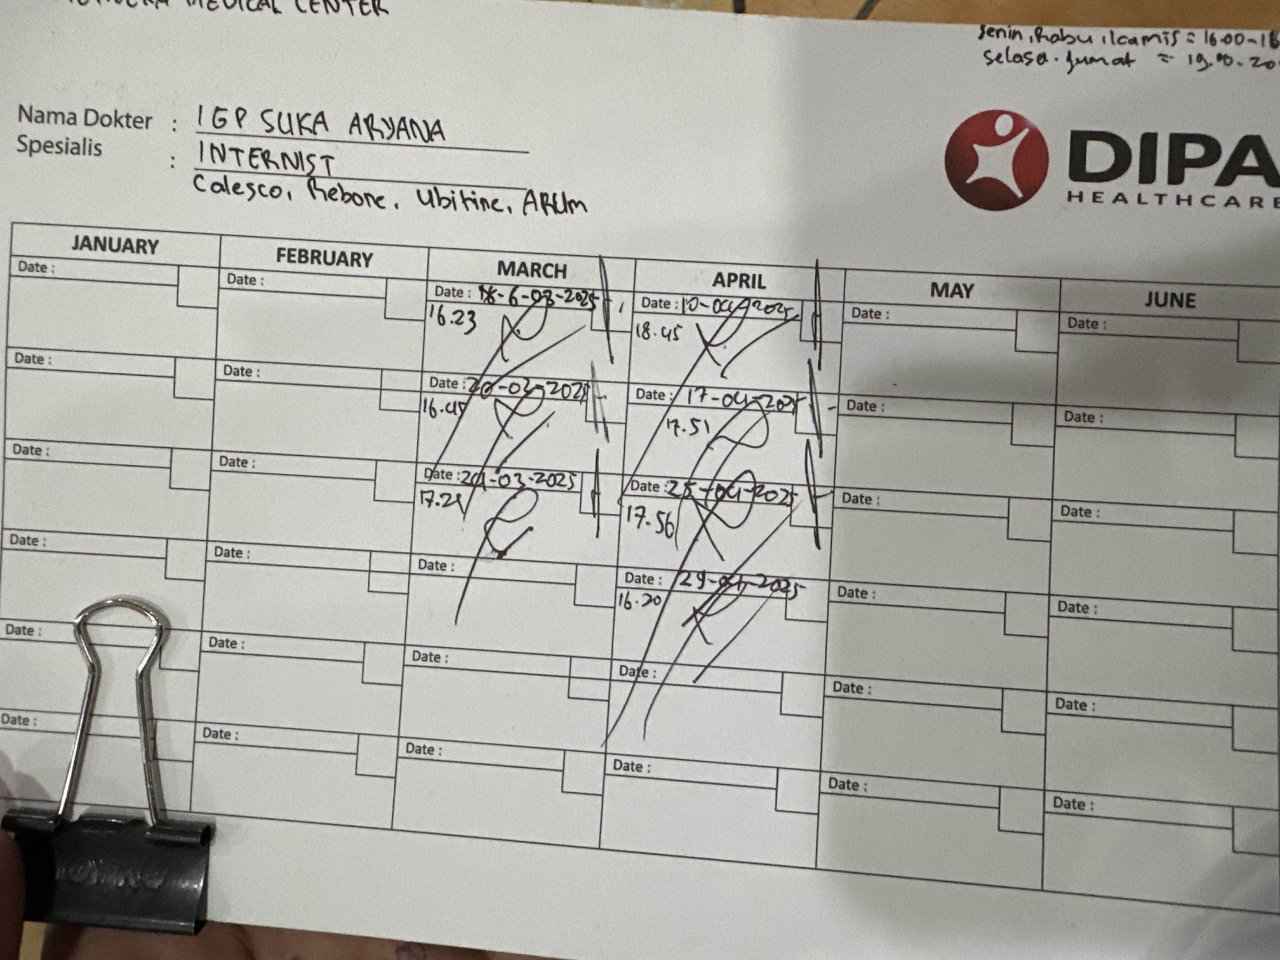 MEDICAL CENTER
Senin, Rabu, Kamis = 16.00-18
Selasa. Jumat = 19.00-20
Nama Dokter : IGP SUKA ARYANA
Spesialis : INTERNIST
Calesco, Rebone, Ubitine, ARUM
DIPA
HEALTHCARE
JANUARY FEBRUARY MARCH APRIL MAY JUNE
Date : Date : Date : 6-03-2025 Date : 10-04-2025 Date : Date :
16.23 18.45
Date : Date : Date : 20-03-2025 Date : 17-04-2025 Date : Date :
16.45 17.51
Date : Date : Date : 24-03-2025 Date : 25-04-2025 Date : Date :
17.21 17.56
Date : Date : Date : Date : 29-04-2025 Date : Date :
16.20
Date : Date : Date : Date : Date : Date :
Date : Date : Date : Date : Date : Date :